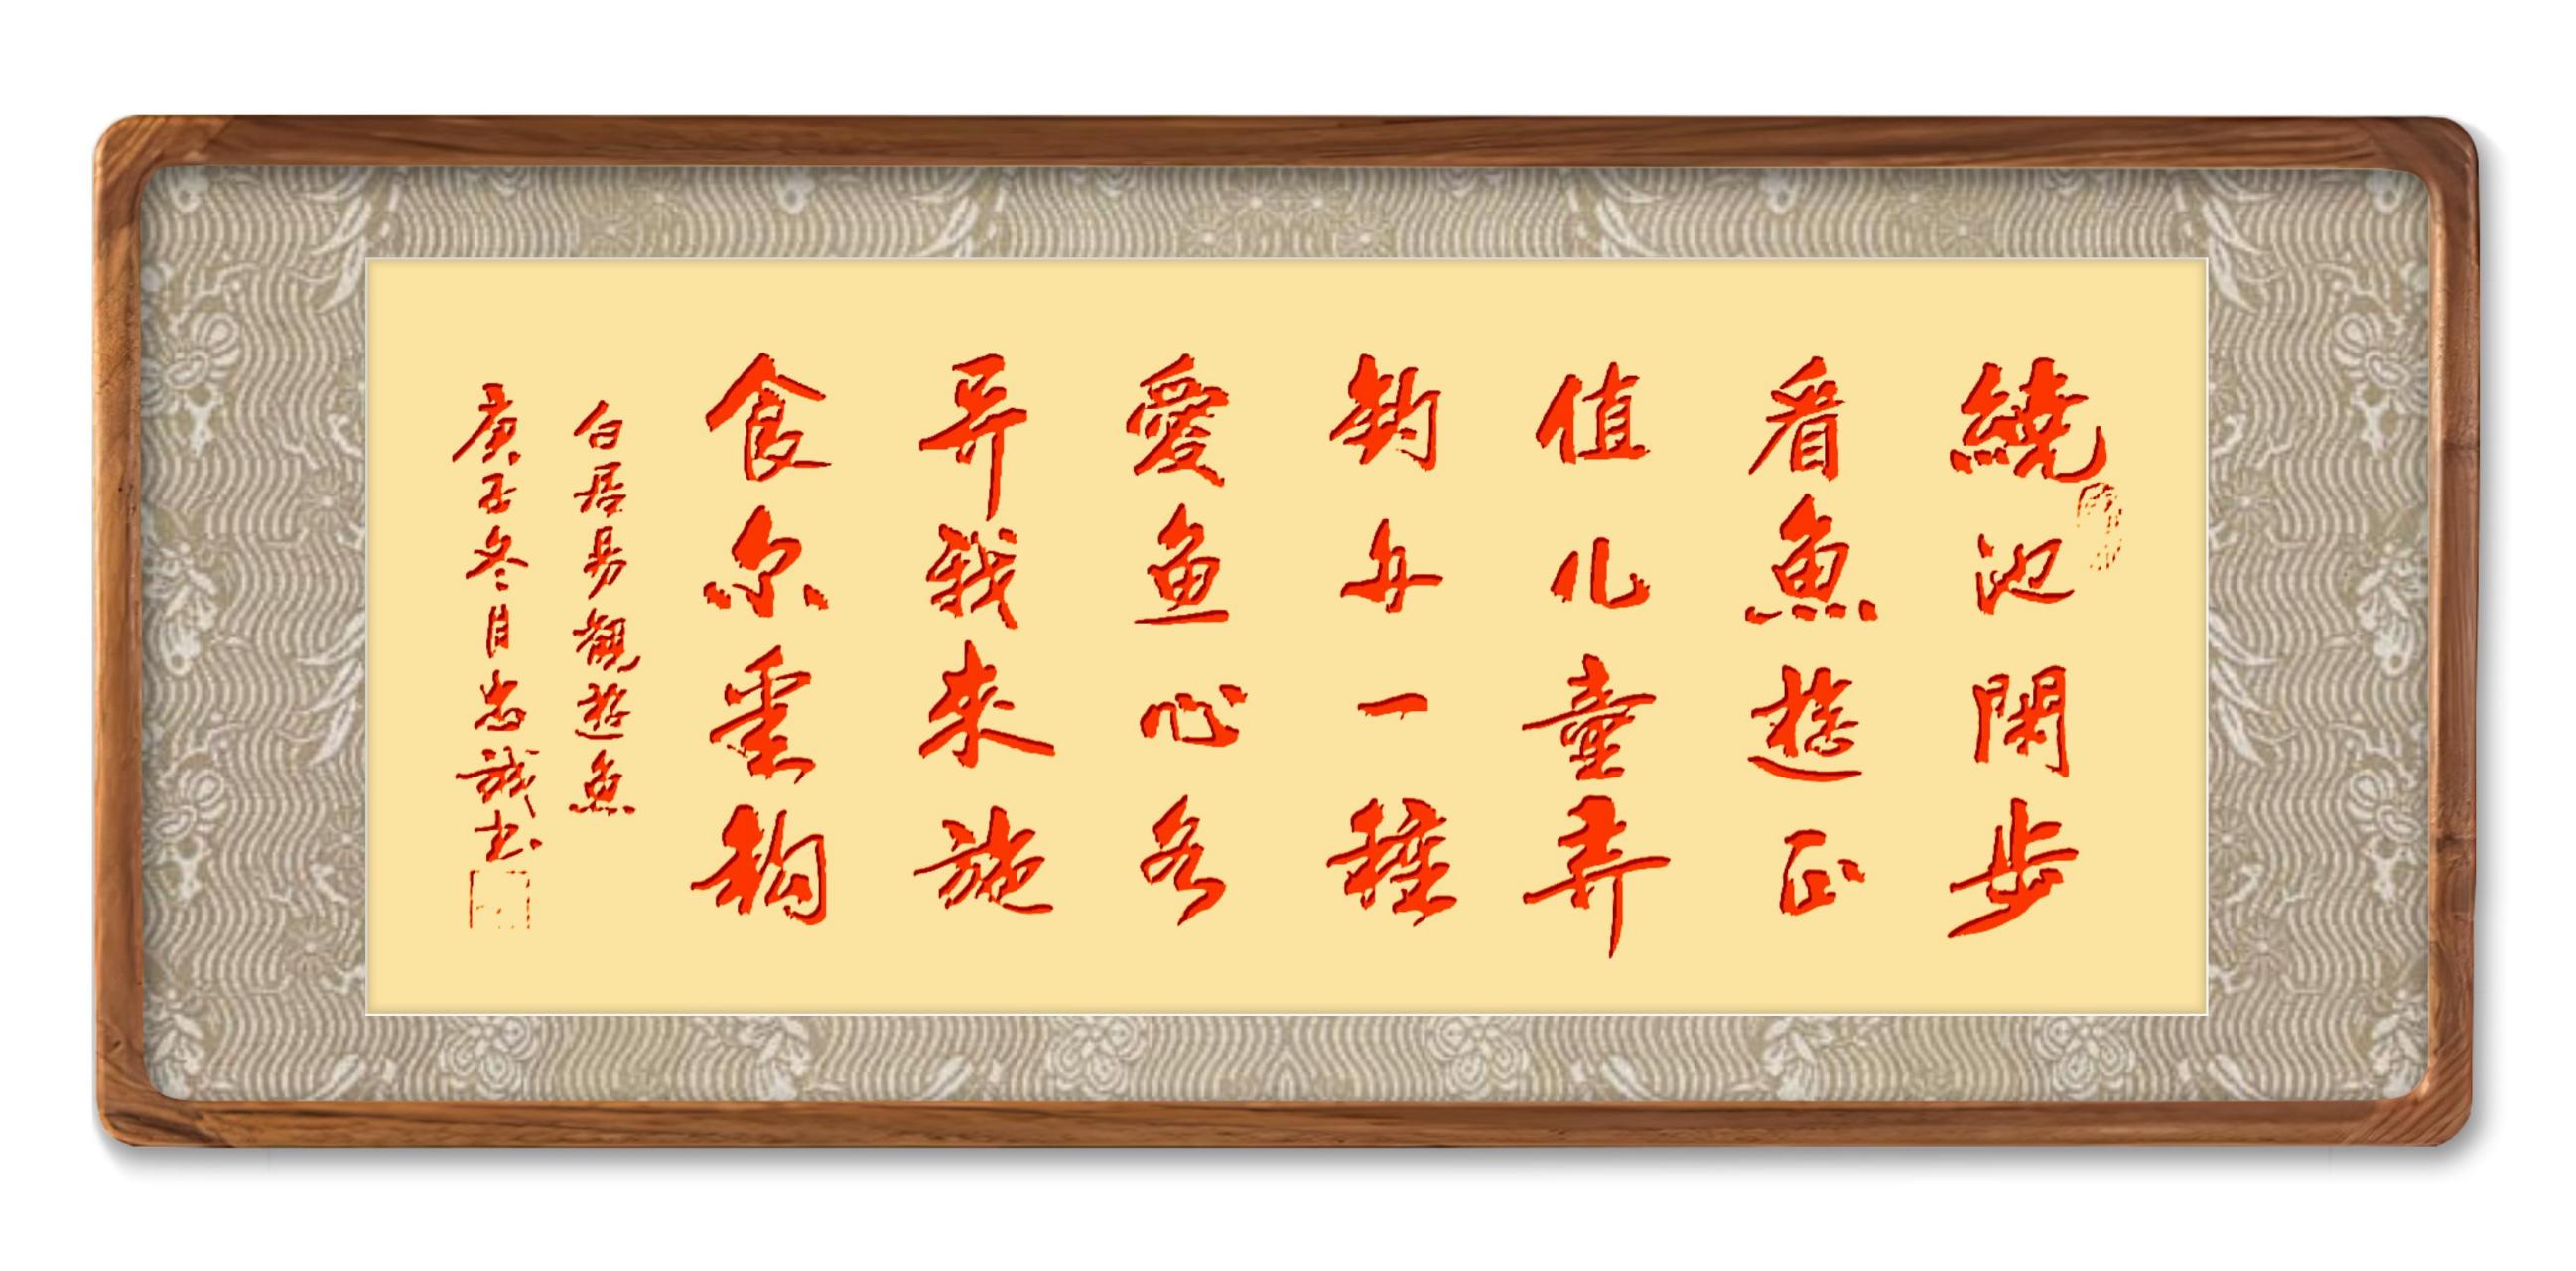 繞池閑步
看魚遊正
值儿童弄
釣舟一種
愛鱼心各
异我来施
食尔垂鈎
白居易觀遊魚
庚子冬月忠誠书